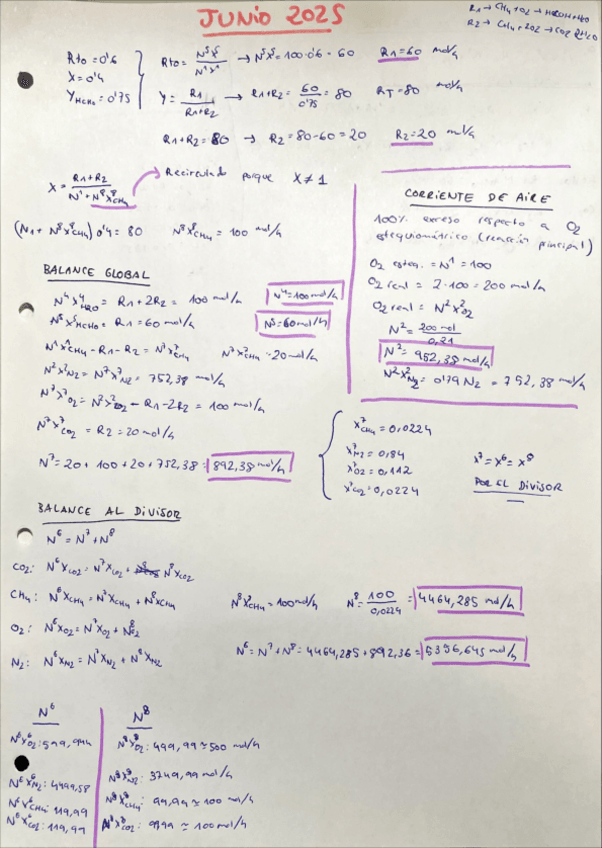 JUNIO 2025
R1 → CH4 + O2 → HCHO + H2O
R2 → CH4 + 2O2 → CO2 + 2H2O
Rto = 0'6
X = 0'4
YHCHO = 0'75
Rto = N⁵X⁵/N¹X¹ → N⁵X⁵ = 100·0'6 = 60 R1 = 60 mol/h
Y = R1/(R1+R2) → R1+R2 = 60/0'75 = 80 RT = 80 mol/h
R1+R2 = 80 → R2 = 80-60 = 20 R2 = 20 mol/h
X = (R1+R2)/(N¹+N⁸X⁸CH4) Recirculado porque X ≠ 1
(N1 + N⁸X⁸CH4) 0'4 = 80 N⁸X⁸CH4 = 100 mol/h
BALANCE GLOBAL
N⁴X⁴H2O = R1 + 2R2 = 100 mol/h N⁴ = 100 mol/h
N⁵X⁵HCHO = R1 = 60 mol/h N⁵ = 60 mol/h
N¹X¹CH4 - R1 - R2 = N⁷X⁷CH4 N⁷X⁷CH4 = 20 mol/h
N²X²N2 = N⁷X⁷N2 = 752,38 mol/h
N⁷X⁷O2 = N²X²O2 - R1 - 2R2 = 100 mol/h
N⁷X⁷CO2 = R2 = 20 mol/h
N⁷ = 20 + 100 + 20 + 752,38 = 892,38 mol/h
CORRIENTE DE AIRE
100% exceso respecto a O2
estequiométrico (reacción principal)
O2 esteq. = N¹ = 100
O2 real = 2·100 = 200 mol/h
O2 real = N²X²O2
N² = 200 mol/0,21
N² = 952,38 mol/h
N²X²N2 = 0'79 N2 = 752,38 mol/h
X⁷CH4 = 0,0224
X⁷N2 = 0,84
X⁷O2 = 0,112
X⁷CO2 = 0,0224
X⁷ = X⁶ = X⁸
POR EL DIVISOR
BALANCE AL DIVISOR
N⁶ = N⁷ + N⁸
CO2: N⁶XCO2 = N⁷XCO2 + N⁸XCO2
CH4: N⁶XCH4 = N⁷XCH4 + N⁸XCH4
O2: N⁶XO2 = N⁷XO2 + N⁸O2
N2: N⁶XN2 = N⁷XN2 + N⁸XN2
N⁸X⁸CH4 = 100 mol/h N⁸ = 100/0,0224 = 4464,285 mol/h
N⁶ = N⁷ + N⁸ = 4464,285 + 892,36 = 5356,645 mol/h
N⁶
N⁶X⁶O2: 599,944
N⁶X⁶N2: 4499,58
N⁶X⁶CH4: 119,99
N⁶X⁶CO2: 119,99
N⁸
N⁸X⁸O2: 499,99 ≈ 500 mol/h
N⁸X⁸N2: 3749,99 mol/h
N⁸X⁸CH4: 99,99 ≈ 100 mol/h
N⁸X⁸CO2: 99,99 ≈ 100 mol/h